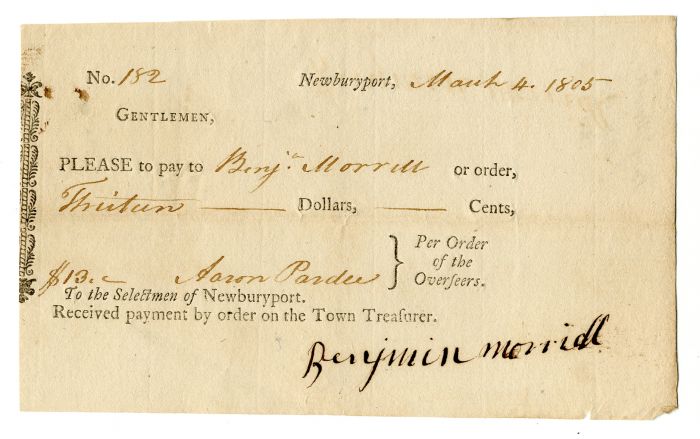 No. 182 Newburyport, March 4. 1805
GENTLEMEN,
PLEASE to pay to Benja Morrill or order,
Thirteen —— Dollars, —— Cents,
$13. Aaron Pardee } Per Order of the Overseers.
To the Selectmen of Newburyport.
Received payment by order on the Town Treasurer.
Benjmin Morrill